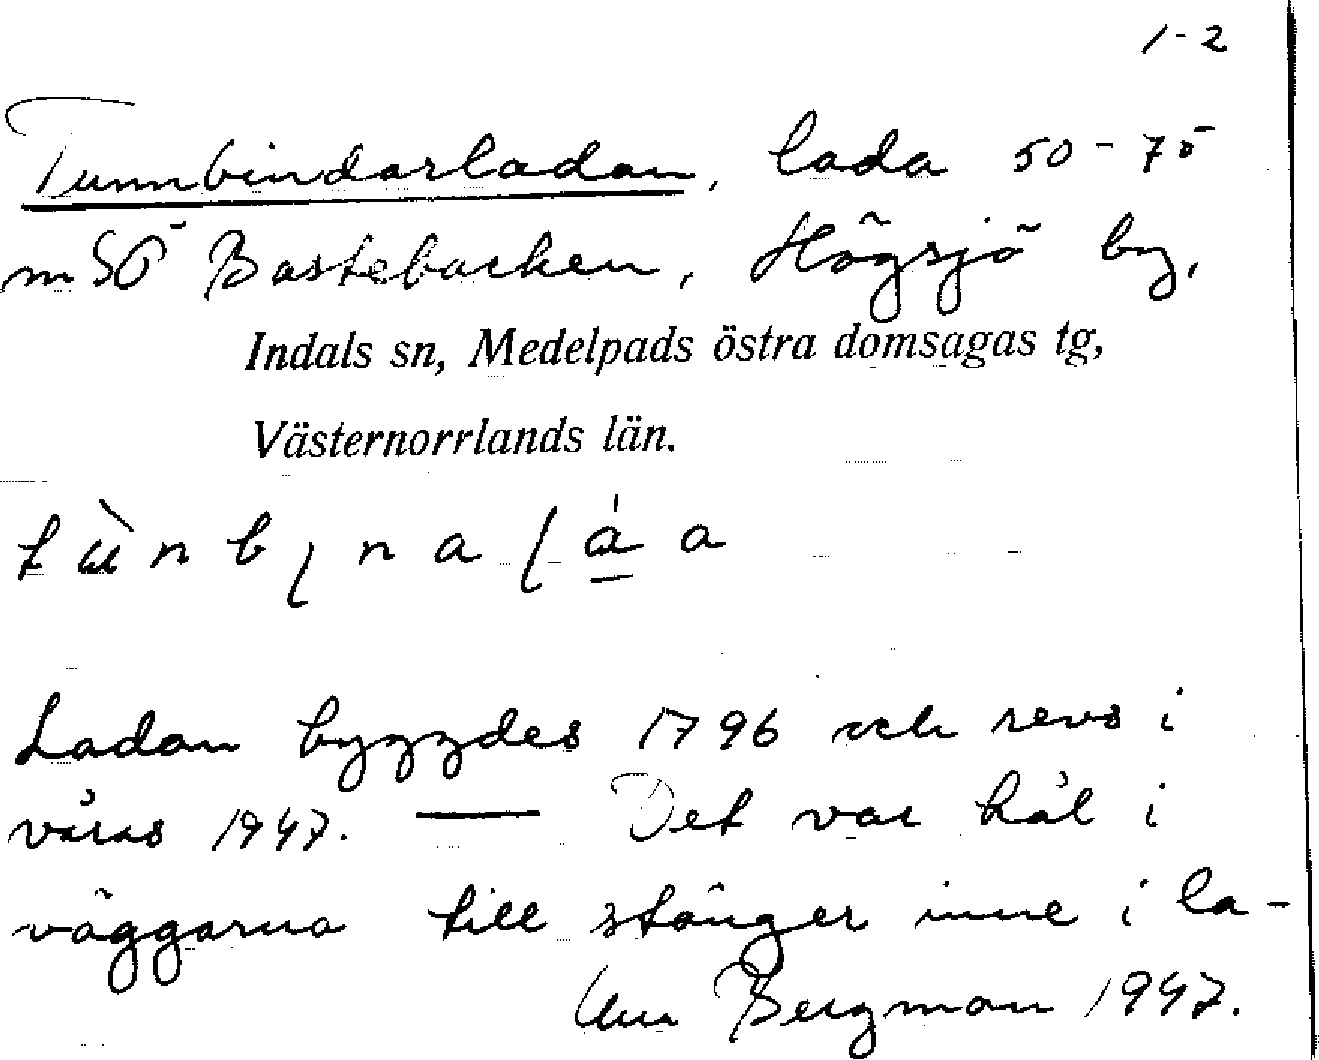 1-2
Tunnbindarladan, lada 50-75
m SÖ Bastebacken, Högsjö by,
Indals sn, Medelpads östra domsagas tg,
Västernorrlands län.
Ladan byggdes 1796 och revs i
våras 1947. — Det var hål i
väggarna till stänger inne i la-
Bergman 1947.